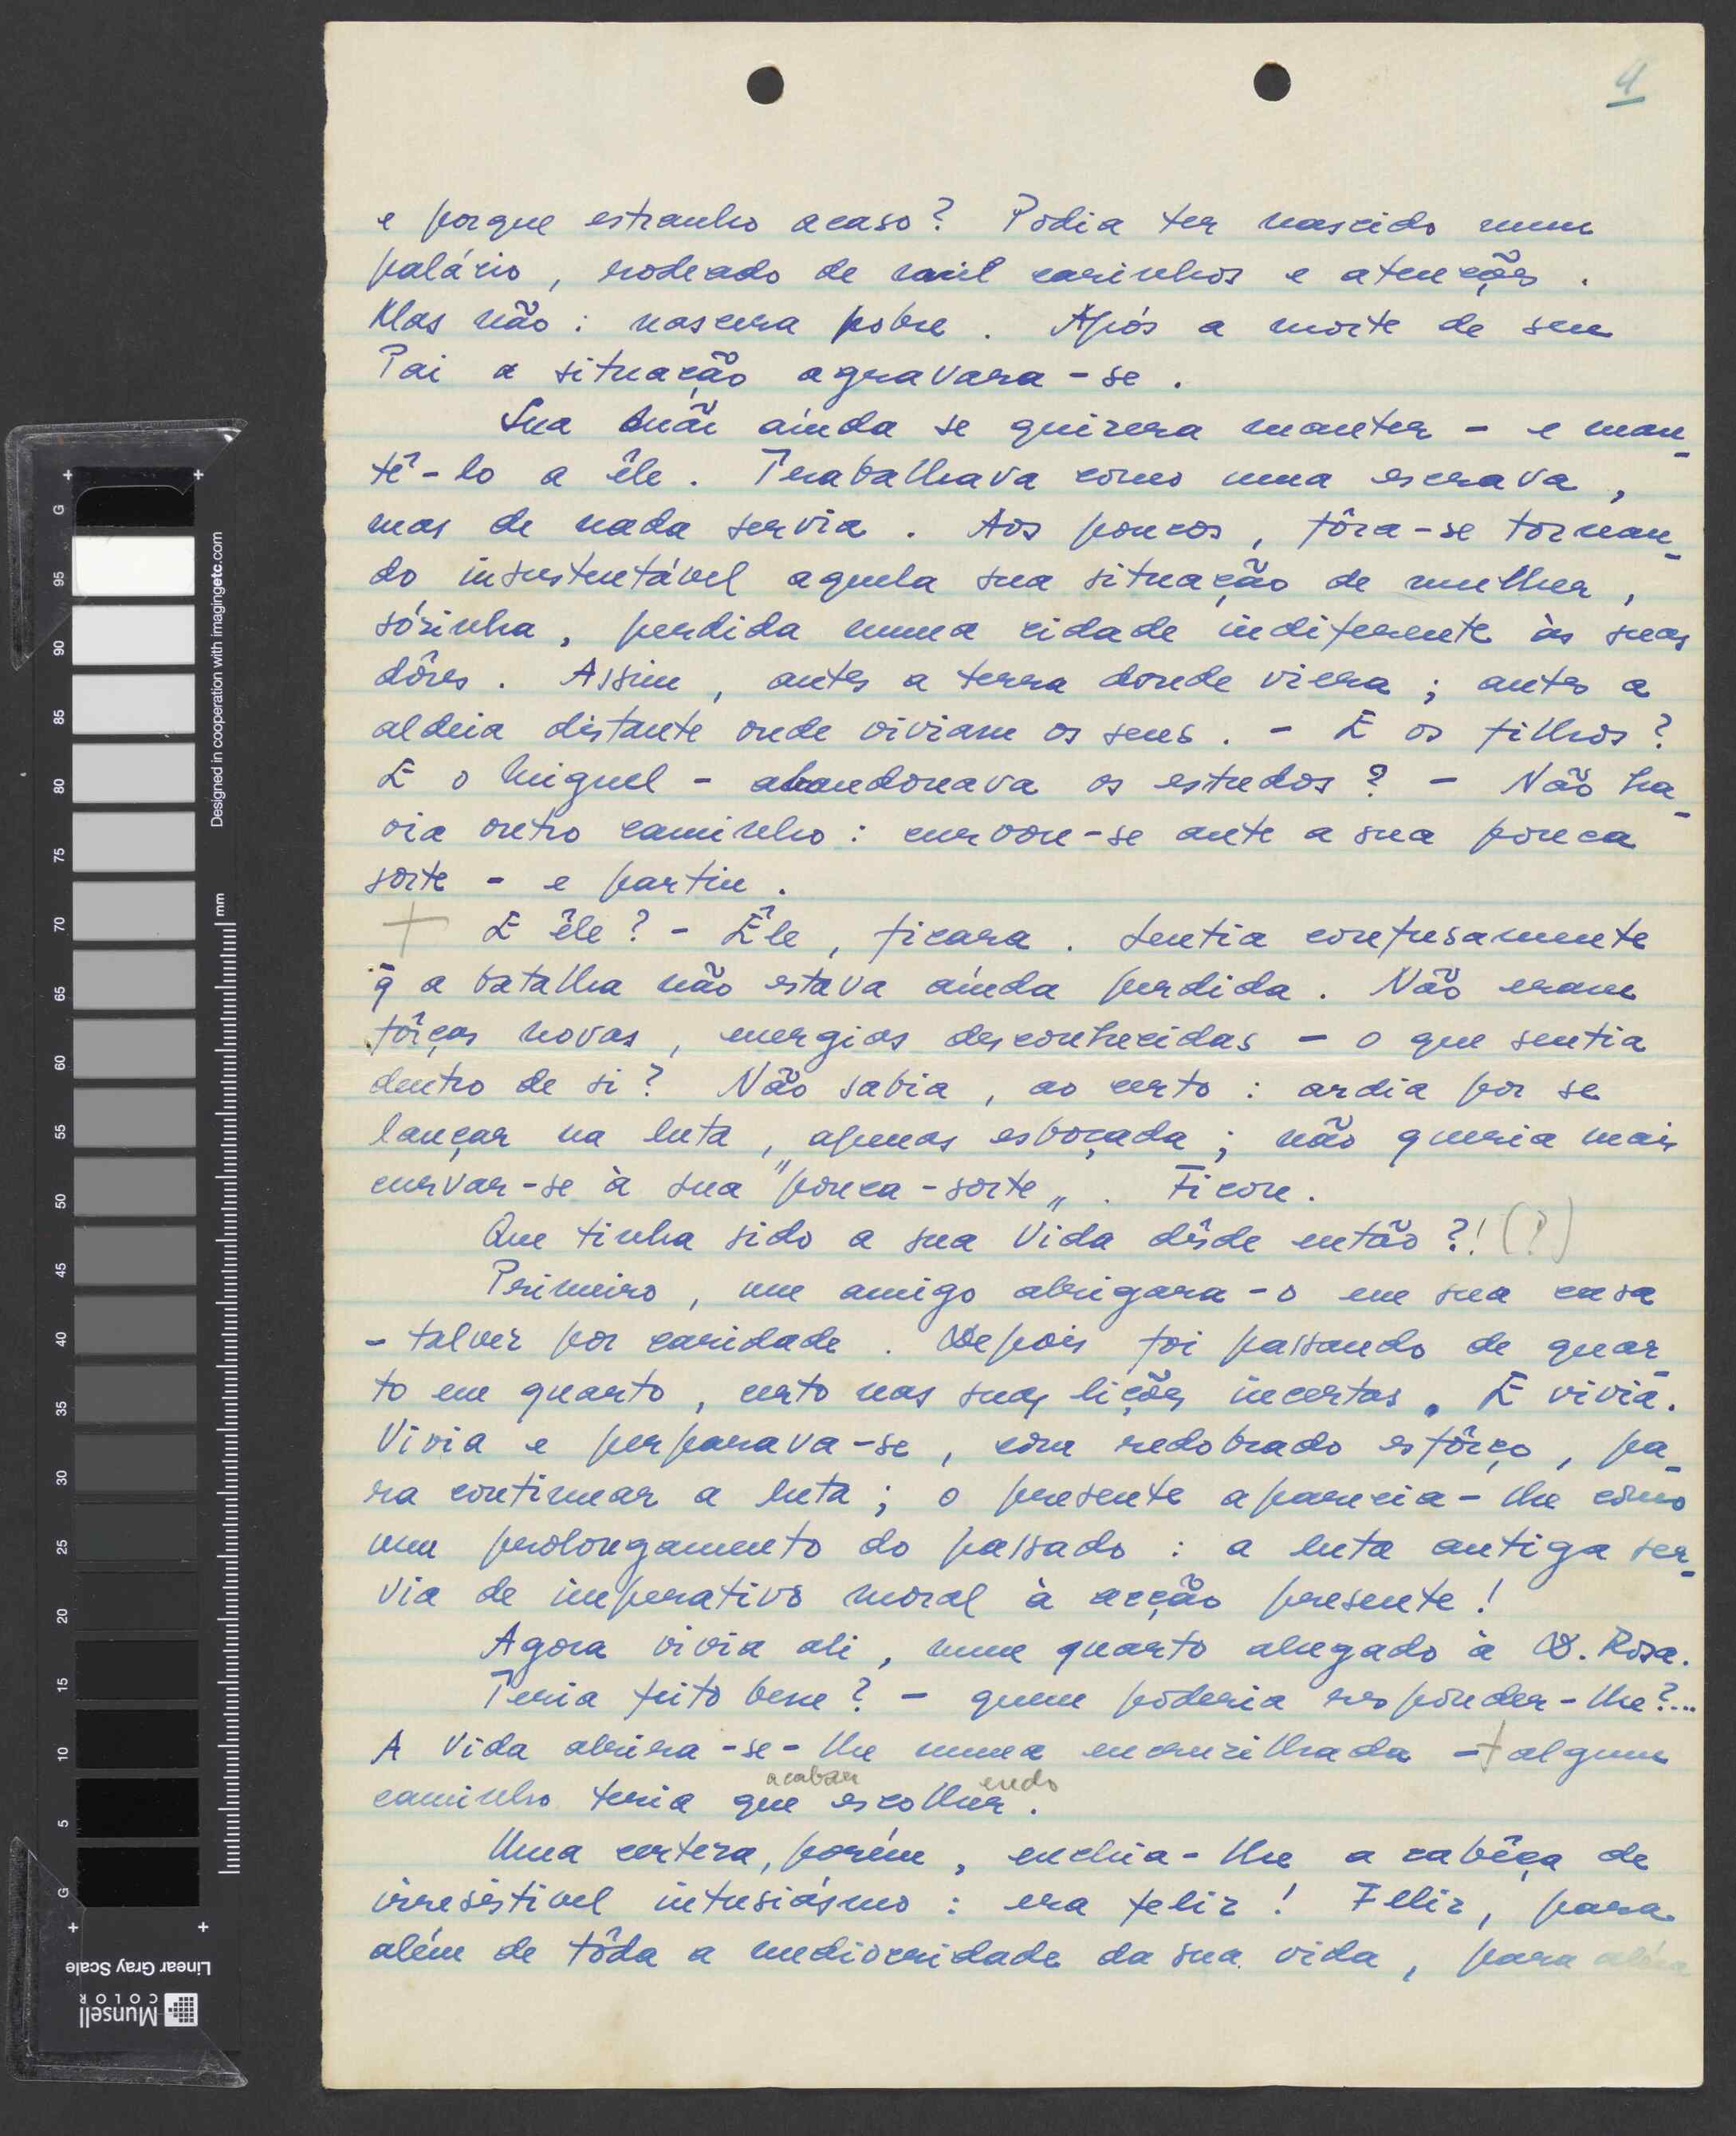 4
e porque estranho acaso? Podia ter nascido num
palácio, rodeado de mil carinhos e atenções.
Mas não: nascera pobre. Após a morte de seu
Pai a situação agravara-se.
Sua Mãi aínda se quizera manter - e man-
tê-lo a êle. Trabalhava como uma escrava,
mas de nada servia. Aos poucos, fôra-se tornan-
do insustentável aquela sua situação de mulher,
sósinha, perdida numa cidade indiferente às suas
dôres. Assim, antes a terra donde viera; antes a
aldeia distante onde viviam os seus. - E os filhos?
E o Miguel - abandonava os estudos? - Não ha-
via outro caminho: curvou-se ante a sua pouca
sorte - e partiu.
+ E êle? - Êle, ficara. Sentia confusamente
q̃ a batalha não estava aínda perdida. Não eram
fôrças novas, energias desconhecidas - o que sentia
dentro de si? Não sabia, ao certo: ardia por se
lançar na luta, apenas esboçada; não queria mais
curvar-se à sua "pouca-sorte". Ficou.
Que tinha sido a sua Vida dêsde então?! (?)
Primeiro, um amigo abrigara-o em sua casa
- talvez por caridade. Depois foi passando de quar-
to em quarto, certo nas suas lições incertas. E vivia.
Vivia e perparava-se, com redobrado esfôrço, pa-
ra continuar a luta; o presente aparecia-lhe como
um prolongamento do passado: a luta antiga ser-
via de imperativo moral à acção presente!
Agora vivia ali, num quarto alugado à D. Rosa.
Teria feito bem? - quem poderia responder-lhe?...
A Vida abrira-se-lhe numa encruzilhada -+ algum
acabar endo
caminho teria que escolher.
Uma certeza, porém, enchia-lhe a cabêça de
irresístivel intusiásmo: era feliz! Feliz, para
além de tôda a mediocridade da sua vida, para além
Designed in cooperation with imagingetc.com
mm
+ +
G 95 90 85 80 75 70 65 60 55 50 45 40 35 30 25 20 15 10 5 G
+ +
Linear Gray Scale
Munsell
COLOR